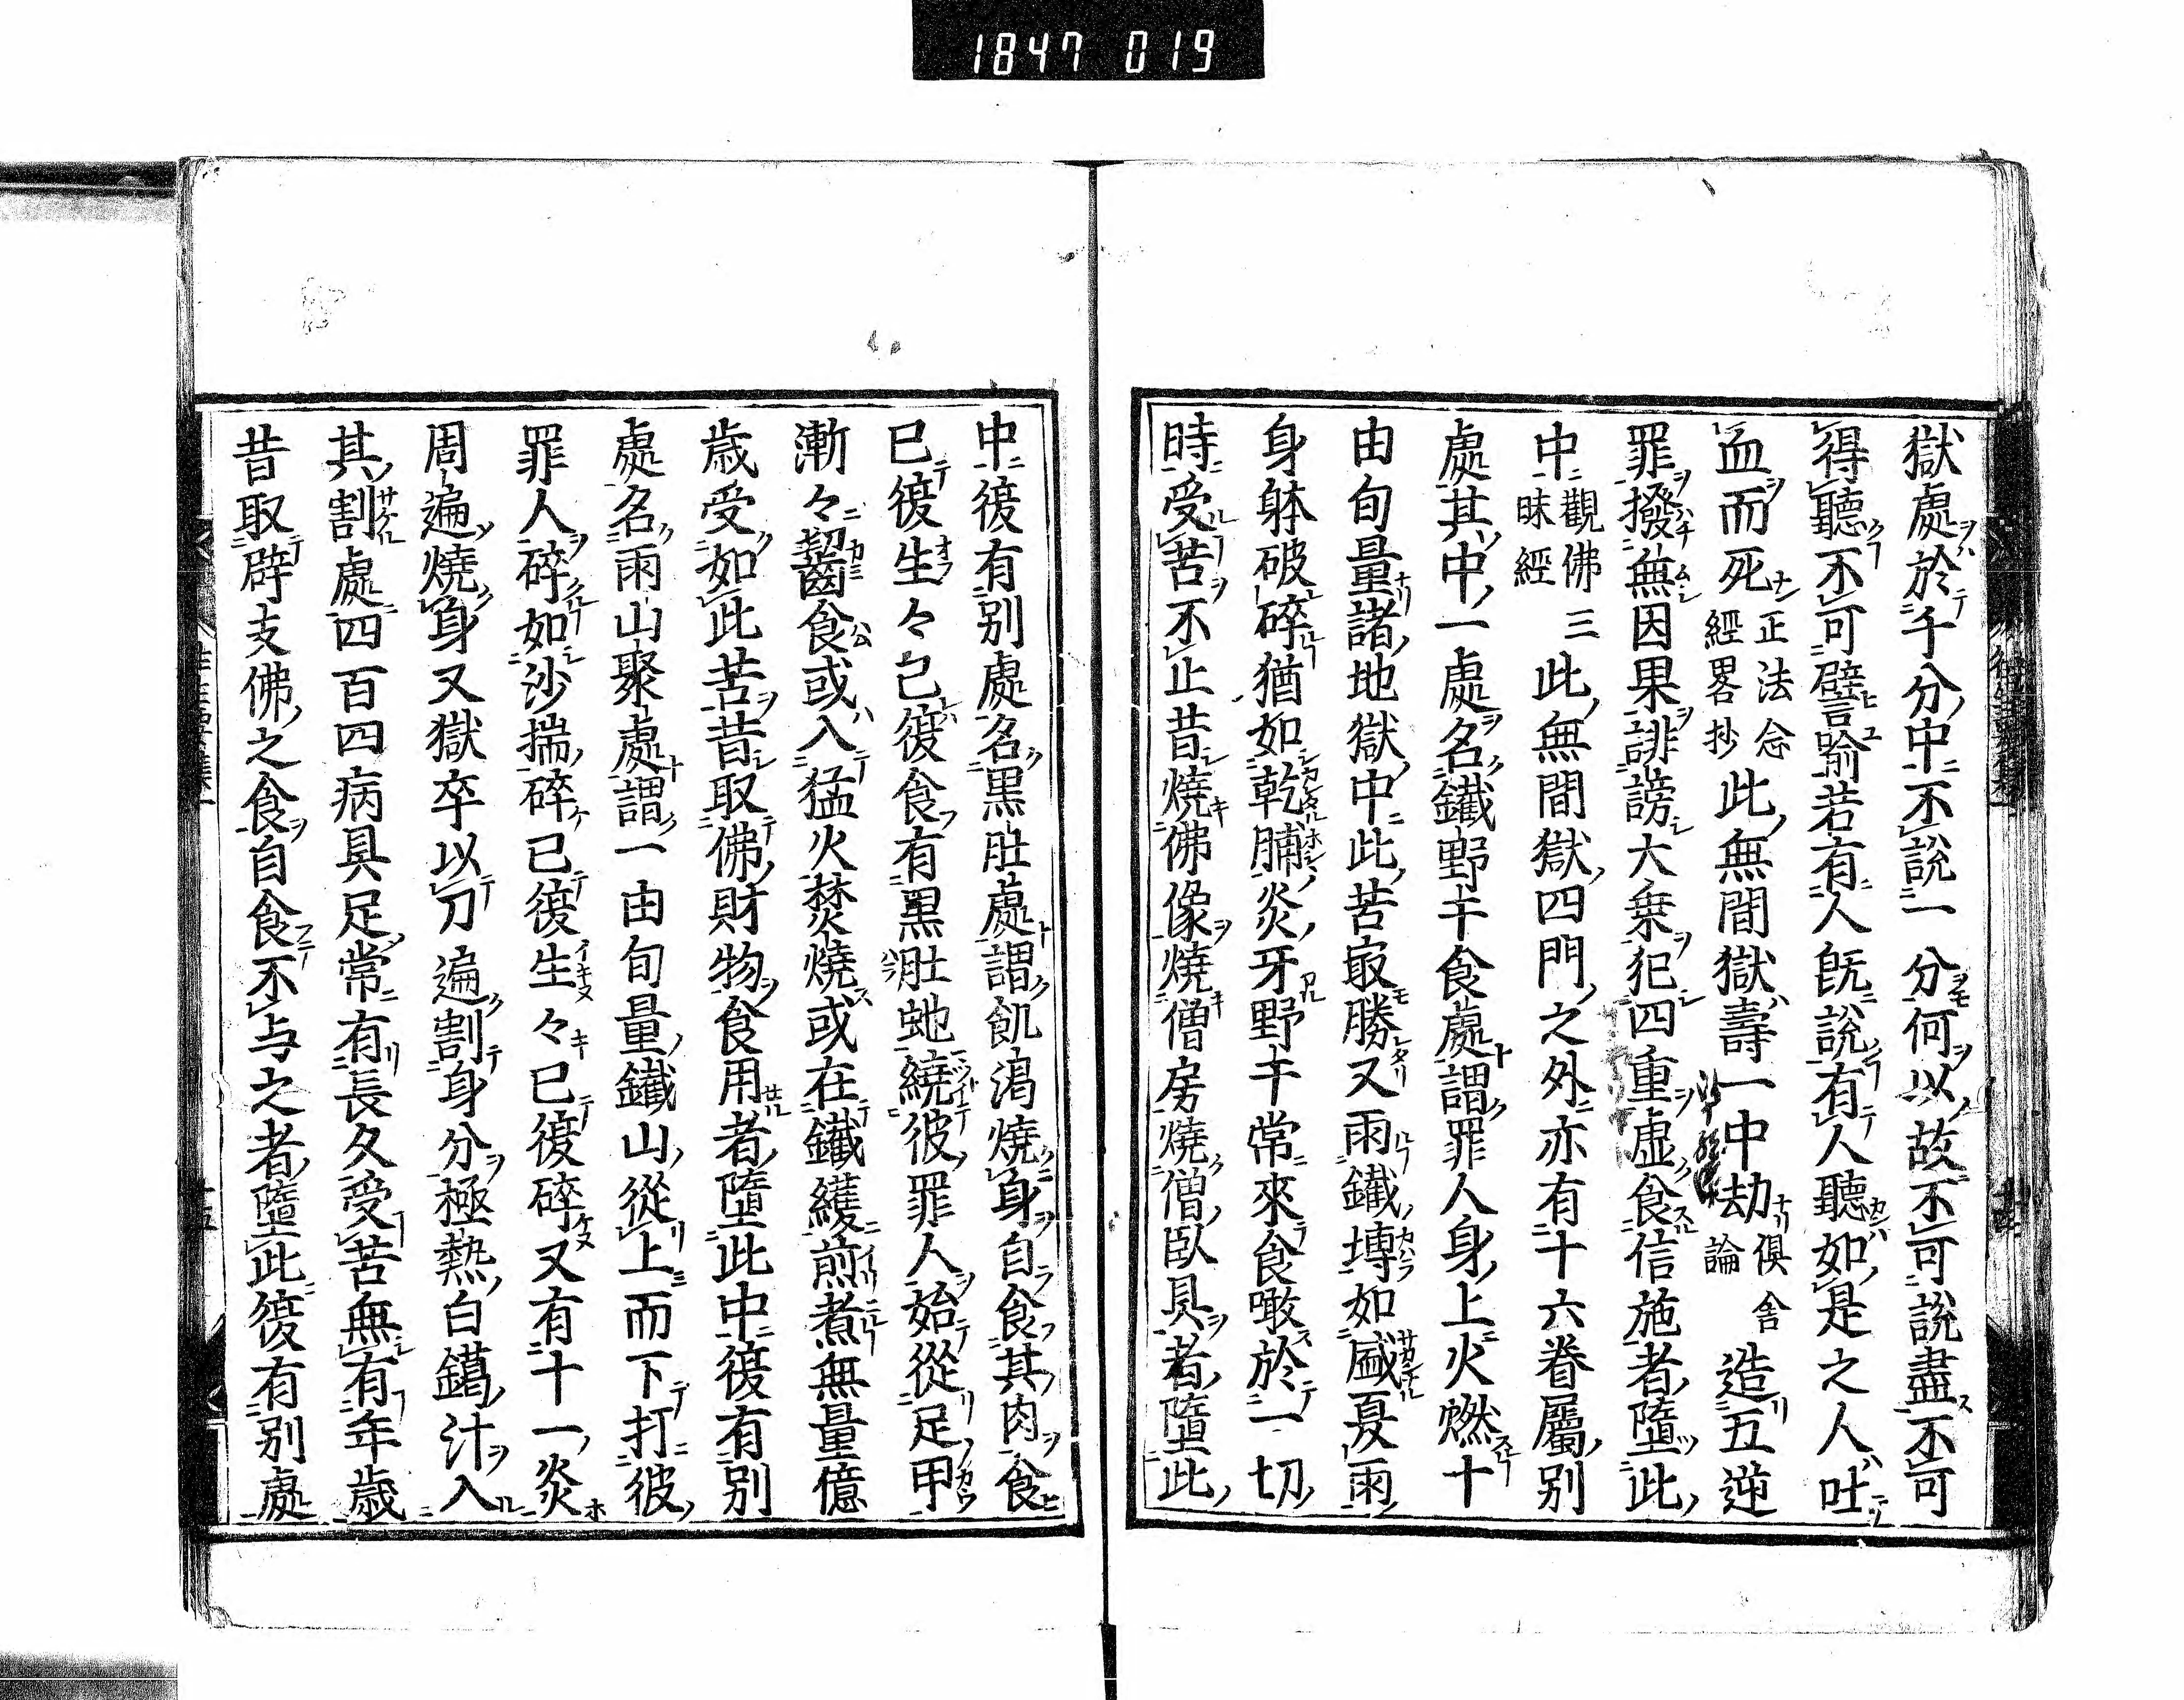 1847 019
獄處於千分中不説一分何以故不可説盡不可
得聽不可譬喩若有人既説有人聽如是之人吐
血而死正法念經畧抄此無間獄壽一中劫倶舎論造五逆
罪撥無因果誹謗大乗犯四重虚食信施者墮此
中觀佛三昧經此無間獄四門之外亦有十六眷屬別
處其中一處名鐵野干食處謂罪人身上火燃十
由旬量諸地獄中此苦最勝又雨鐵塼如盛夏雨
身躰破碎猶如乾脯炎牙野干常來食噉於一切
時受苦不止昔燒佛像燒僧房燒僧臥具者墮此
中復有別處名黒肚處謂飢渇燒身自食其肉食
已復生々已復食有黒肚虵繞彼罪人始從足甲
漸々齧食或入猛火焚燒或在鐵鑊煎煮無量億
歳受如此苦昔取佛財物食用者墮此中復有別
處名雨山聚處謂一由旬量鐵山從上而下打彼
罪人碎如沙揣碎已復生々已復碎又有十一炎
周遍燒身又獄卒以刀遍割身分極熱白鑞汁入
其割處四百四病具足常有長久受苦無有年歳
昔取辟支佛之食自食不与之者墮此復有別處